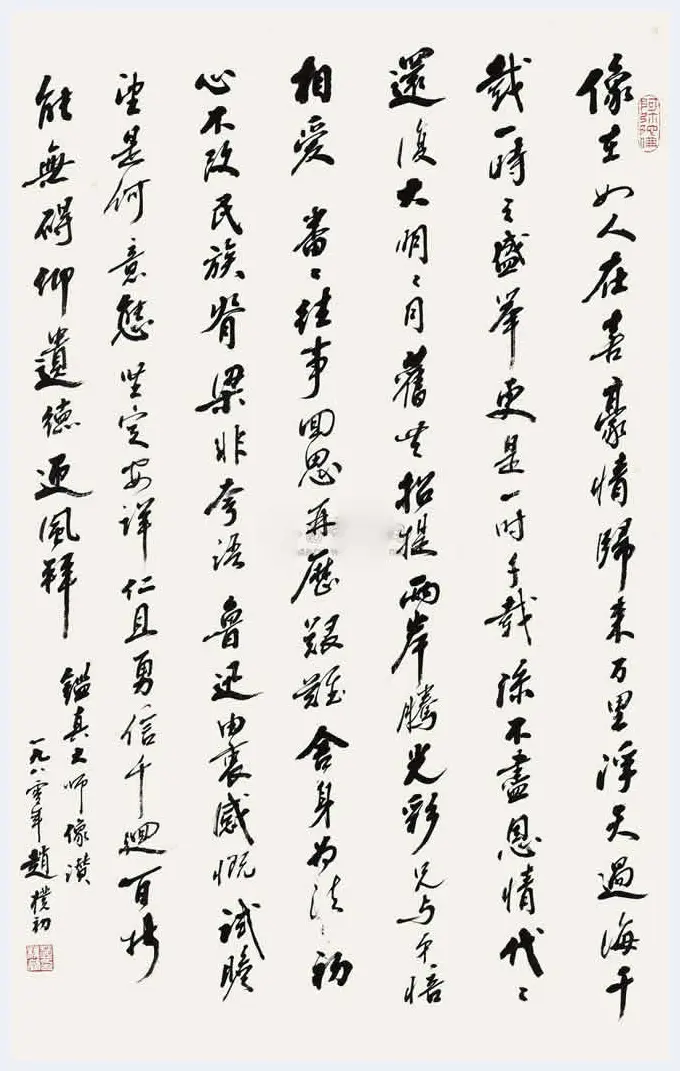 阿弥陀佛
像在如人在喜豪情歸来万里浮天過海千
载一時之盛举更是一时千载添不盡恩情代〻
還復大明〻月舊共招提兩岸騰光彩兄与弟倍
相愛 番〻往事回思再歷艱難舍身为法初
心不改民族脊梁非夸语魯迅由衷感慨试瞻
望是何意態坚定安详仁且勇信千迴百折
能無碍仰遺德迎风拜
鑑真大师像讃
一九八零年趙樸初